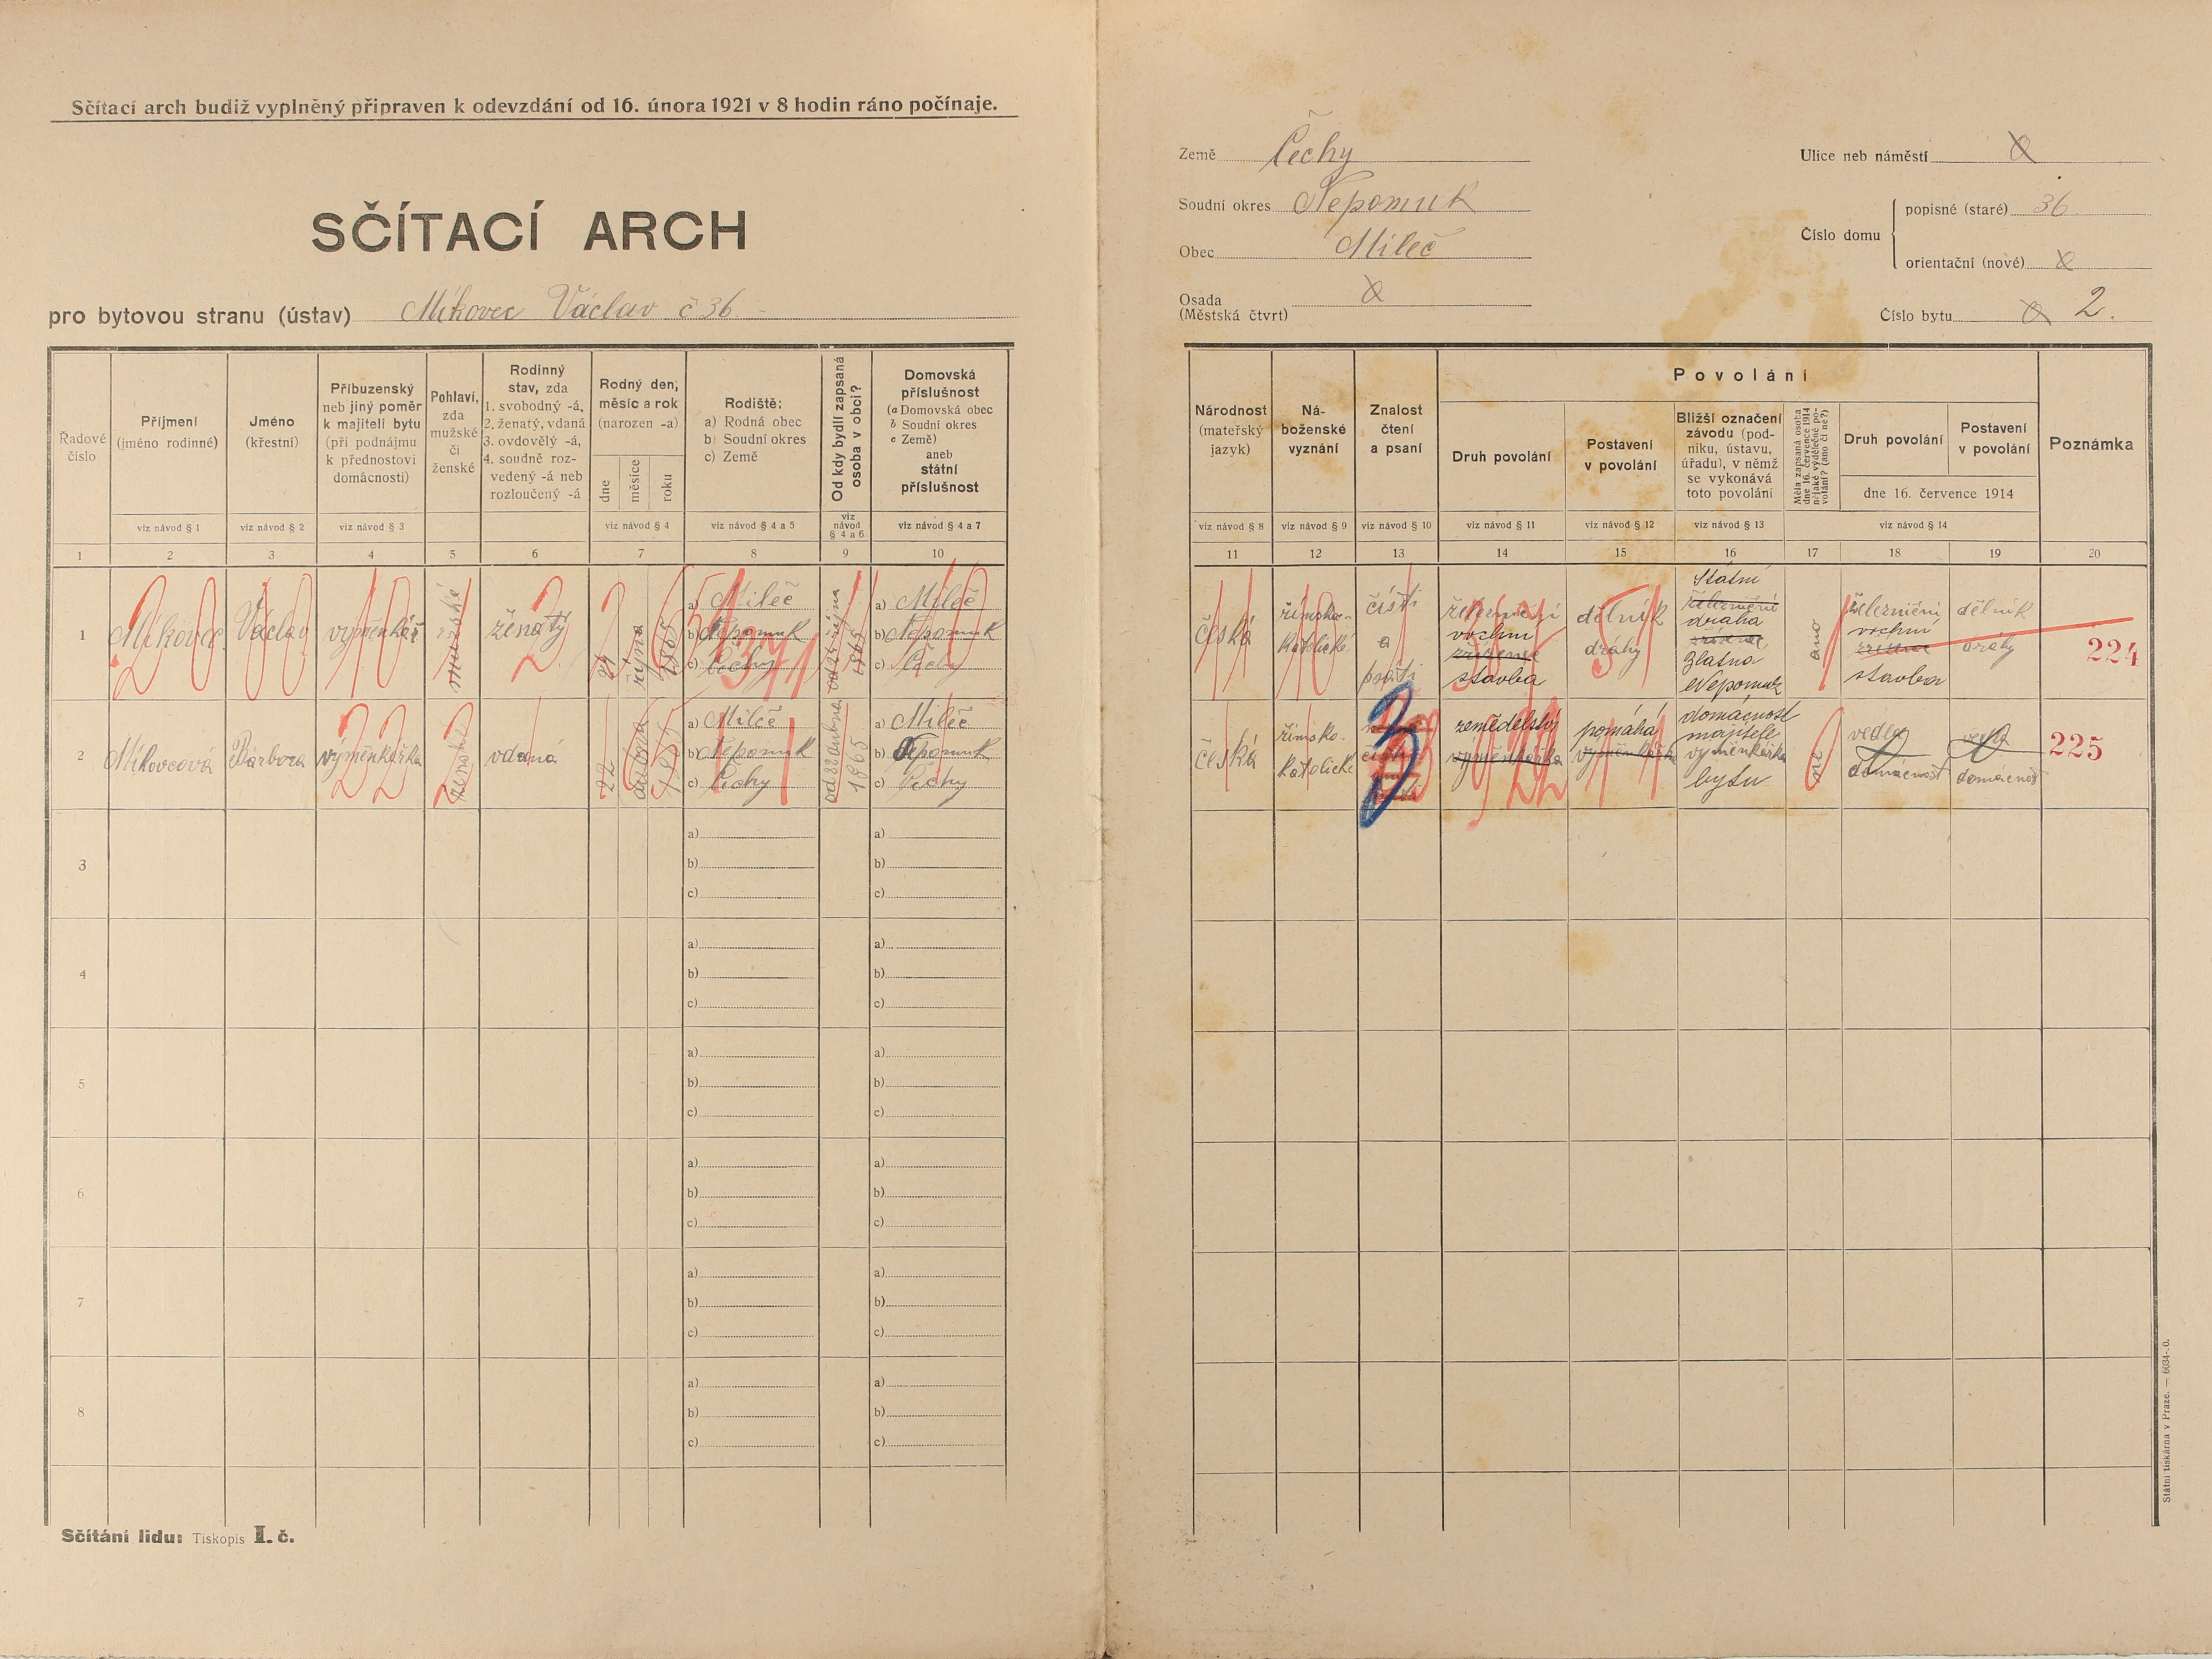 Sčítací arch budiž vyplněný připraven k odevzdání od 16. února 1921 v 8 hodin ráno počínaje.
SČÍTACÍ ARCH
pro bytovou stranu (ústav) Míkovec Václav č 36
Země Čechy
Soudní okres Nepomuk
Obec Mileč
Osada
(Městská čtvrt)
Ulice neb náměstí
Číslo domu
popisné (staré) 36
orientační (nové)
Číslo bytu 2.
Řadové číslo
Příjmení (jméno rodinné)
Jméno (křestní)
Příbuzenský neb jiný poměr k majiteli bytu (při podnájmu k přednostovi domácnosti)
Pohlaví, zda mužské či ženské
Rodinný stav, zda
1. svobodný -á,
2. ženatý, vdaná
3. ovdovělý -á,
4. soudně rozvedený -á neb rozloučený -á
Rodný den, měsíc a rok (narozen -a)
dne měsíce roku
Rodiště:
a) Rodná obec
b) Soudní okres
c) Země
Od kdy bydlí zapsaná osoba v obci?
Domovská příslušnost
(a Domovská obec
b Soudní okres
c Země)
aneb
státní příslušnost
viz návod § 1 viz návod § 2 viz návod § 3 viz návod § 4 viz návod § 4 a 5 viz návod § 4 a 6 viz návod § 4 a 7
1 2 3 4 5 6 7 8 9 10
1 Míkovec Václav výměnkář mužské ženatý října 1865
a) Mileč
b) Nepomuk
c) Čechy
od října 1865
a) Mileč
b) Nepomuk
c) Čechy
2 Míkovcová Barbora výměnkářka ženské vdaná 22 dubna
a) Mileč
b) Nepomuk
c) Čechy
od 22 dubna 1865
a) Mileč
b) Nepomuk
c) Čechy
3 a) a)
b) b)
c) c)
4 a) a)
b) b)
c) c)
5 a) a)
b) b)
c) c)
6 a) a)
b) b)
c) c)
7 a) a)
b) b)
c) c)
8 a) a)
b) b)
c) c)
Sčítání lidu: Tiskopis I. č.
Národnost (mateřský jazyk)
Náboženské vyznání
Znalost čtení a psaní
Povolání
Druh povolání
Postavení v povolání
Bližší označení závodu (podniku, ústavu, úřadu), v němž se vykonává toto povolání
Měla zapsaná osoba dne 16. července 1914 nějaké výdělečné povolání? (ano či ne?)
Druh povolání
Postavení v povolání
dne 16. července 1914
Poznámka
viz návod § 8 viz návod § 9 viz návod § 10 viz návod § 11 viz návod § 12 viz návod § 13 viz návod § 14
11 12 13 14 15 16 17 18 19 20
česká
římsko-
katolické
čísti
a
psáti
železniční
vrchní
stavba
dělník
dráhy
Státní
železniční
dráha
Zlatna
Nepomuk
ano
železniční
vrchní
stavba
dělník
dráhy
224
česká
římsko-
katolické
3
zemědělství
výměnkářka
pomáhá
výměnkářka
domácnost
majitele
výměnkářka
bytu
ne
vedla
domácnost
vedla
domácnost
225
Státní tiskárna v Praze. — 6034-.0.